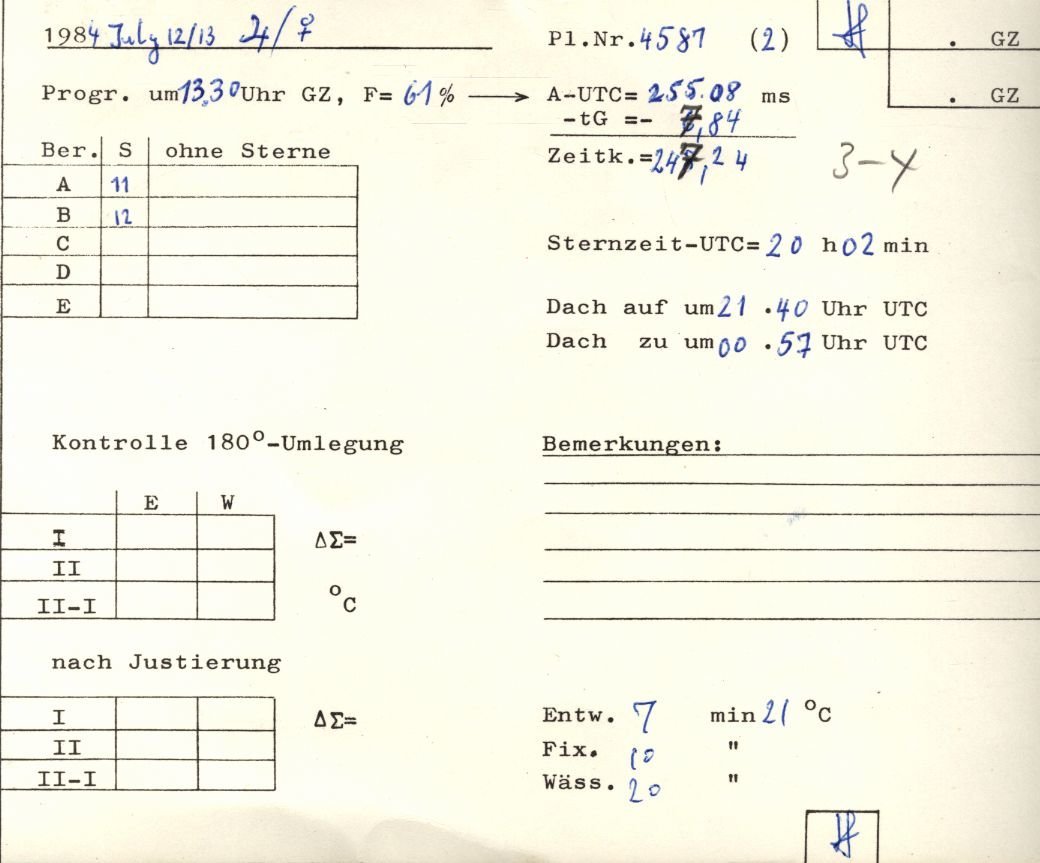 1984 July 12/13 ♃/♀
Pl.Nr.4587 (2)
. GZ
Progr. um 13.30 Uhr GZ, F= 61% → A-UTC= 255.08 ms
. GZ
-tG =- 7,84
Zeitk.=247,24
3-4
Ber. S ohne Sterne
A 11
B 12
C
D
E
Sternzeit-UTC= 20 h 02 min
Dach auf um 21 .40 Uhr UTC
Dach zu um 00 .57 Uhr UTC
Kontrolle 180°-Umlegung
E W
I
II
II-I
ΔΣ=
°C
Bemerkungen:
nach Justierung
I
II
II-I
ΔΣ=
Entw. 7 min 21 °C
Fix. 10 "
Wäss. 20 "